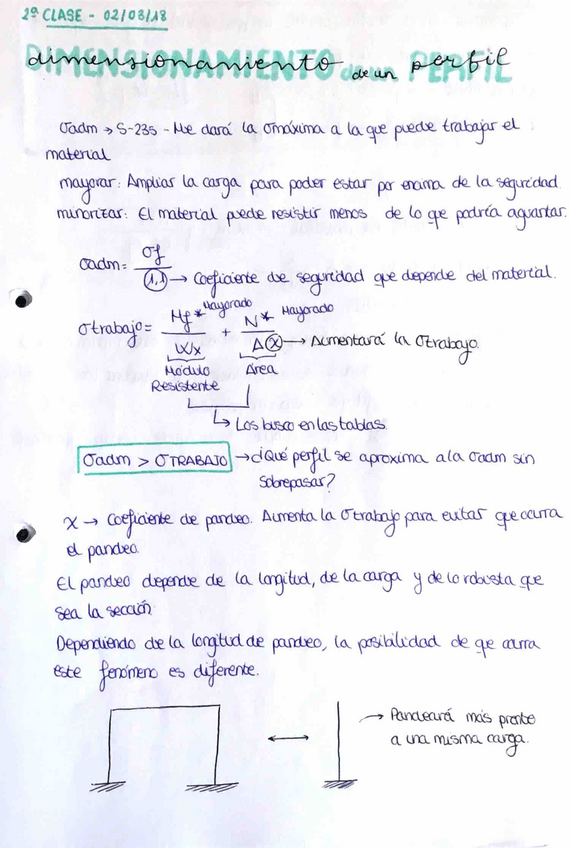 2ª CLASE - 02/03/18
dimensionamiento de un perfil
σadm → S-235 - Me dará la σmáxima a la que puede trabajar el
material
mayorar: Ampliar la carga para poder estar por encima de la seguridad.
minorizar: El material puede resistir menos de lo que podría aguantar.
σadm = σf / 1,1 → Coeficiente de seguridad que depende del material.
σtrabajo = Mf* Mayorado / Wx + N* Mayorado / A χ → Aumentará la σtrabajo.
Módulo Resistente Área
↳ Los busco en las tablas.
σadm > σTRABAJO → ¿Qué perfil se aproxima a la σadm sin
sobrepasar?
χ → Coeficiente de pandeo. Aumenta la σtrabajo para evitar que ocurra
el pandeo.
El pandeo depende de la longitud, de la carga y de lo robusta que
sea la sección
Dependiendo de la longitud de pandeo, la posibilidad de que ocurra
este fenómeno es diferente.
→ Pandeará más pronto
a una misma carga.